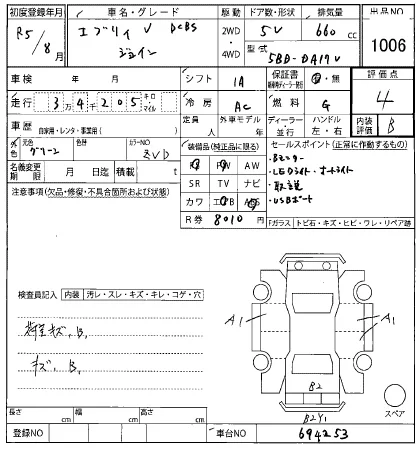 初度登録年月 車名・グレード 駆動 ドア数・形状 排気量 出品NO
R5/8月 エブリイ V DCBS 2WD・4WD 5V 660 cc 1006
ジョイン 型式 5BD-DA17V
車検 年 月 シフト IA 保証書 有・無 評価点
走行 34205 キロ マイル 冷房 AC 燃料 G 4
車歴 自家用・レンタ・事業用( ) 定員 人 外車モデル 年 ディーラー・並行 ハンドル 左・右 内装評価 B
外色 元色 グリーン 色替 カラーNO ZVD 装備品(純正品に限る) セールスポイント(正常に作動するもの)
名義変更期限 月 日迄 積載 t PS PW AW ・Bモニター
注意事項(欠品・修復・不具合箇所および状態) SR TV ナビ ・LEDライト・オートライト
カワ エアB ABS ・取説
R券 8010 円 ・USBポート
Fガラス トビ石・キズ・ヒビ・ワレ・リペア跡
検査員記入 内装 汚レ・スレ・キズ・キレ・コゲ・穴
荷室キズ、B、
キズ、B、
A1
A1
B2
B2Y1
スペア
長さ cm 幅 cm 高さ cm
登録NO 車台NO 694253